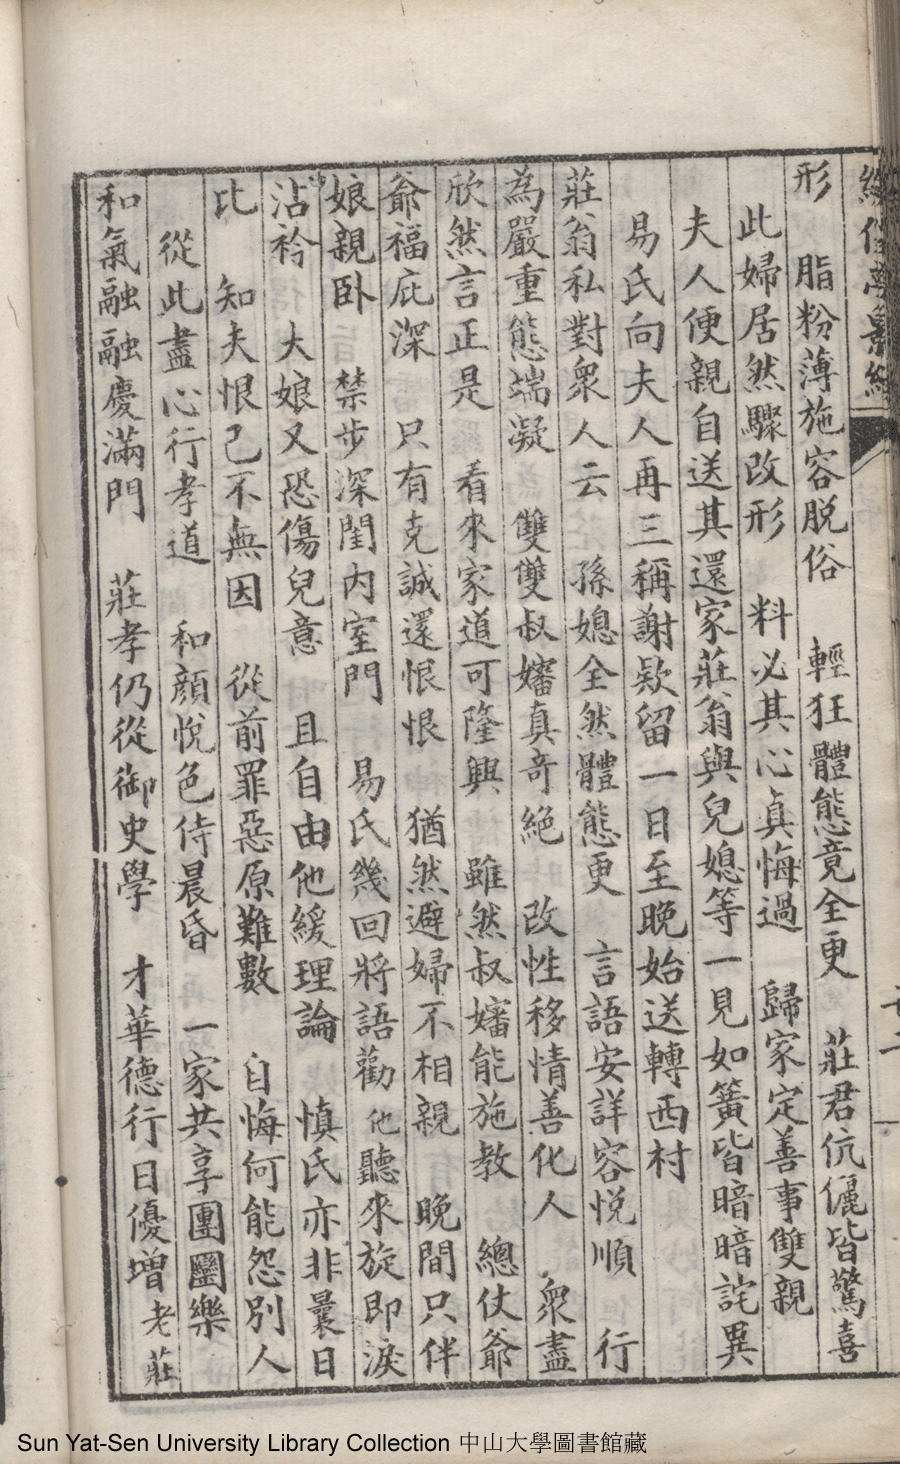 形 脂粉薄施容脱俗 輕狂體態竟全更 莊君伉儷皆驚喜
此婦居然驟改形 料必其心真悔過 歸家定善事雙親
夫人便親自送其還家莊翁與兒媳等一見如簧皆暗暗詫異
易氏向夫人再三稱謝欵留一日至晚始送轉西村
莊翁私對衆人云 孫媳全然體態更 言語安詳容悦順 行
為嚴重態端凝 雙雙叔嬸真奇絕 改性移情善化人 衆盡
欣然言正是 看來家道可隆興 雖然叔嬸能施教 總仗爺
爺福庇深 只有克誠還恨恨 猶然避婦不相親 晚間只伴
娘親卧 禁步深閨内室門 易氏幾回將語勸 他聽來旋即淚
沾衿 大娘又恐傷兒意 且自由他緩理論 慎氏亦非曩日
比 知夫恨己不無因 從前罪惡原難數 自悔何能怨別人
從此盡心行孝道 和顏悅色侍晨昏 一家共享團圞樂
和氣融融慶滿門 莊孝仍從御史學 才華德行日優增 老莊
Sun Yat-Sen University Library Collection 中山大學圖書館藏